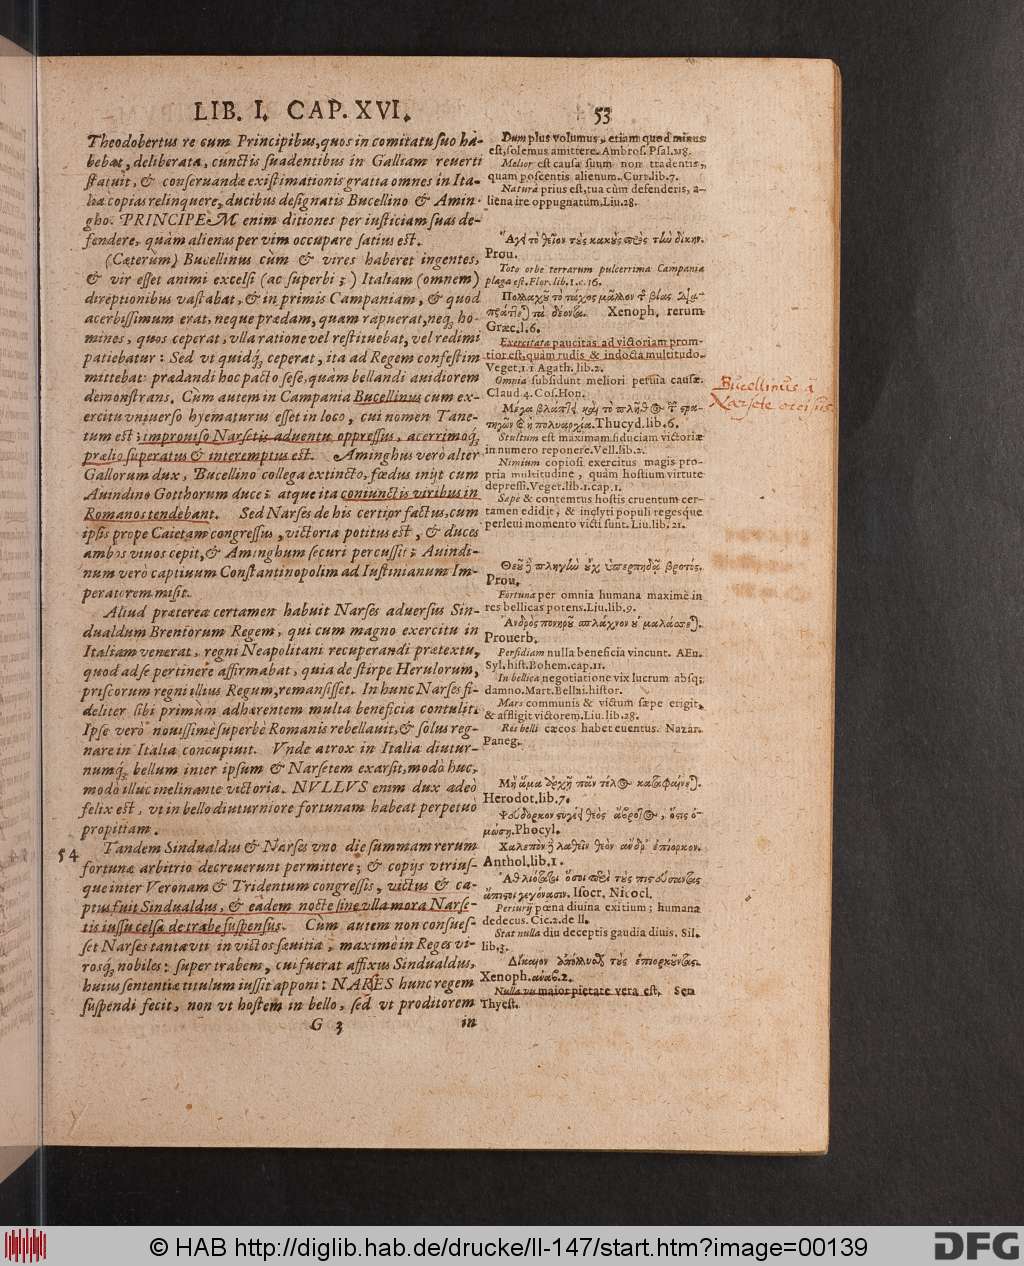 LIB. I. CAP. XVI. 53
Theodobertus re cum Principibus, quos in comitatu suo ha-
bebat, deliberata, cunctis suadentibus in Galliam reuerti
statuit, & conseruandæ existimationis gratia omnes in Ita-
lia copias relinquere, ducibus designatis Bucellino & Amin-
gho. PRINCIPEM enim ditiones per iusticiam suas de-
fendere, quàm alienas per vim occupare satius est.
(Cæterùm) Bucellinus cùm & vires haberet ingentes,
& vir esset animi excelsi (ac superbi;) Italiam (omnem)
direptionibus vastabat, & in primis Campaniam, & quod
acerbissimum erat, neque prædam, quam rapuerat, neq; ho-
mines, quos ceperat, vlla ratione vel restituebat, vel redimi
patiebatur: Sed vt quidq; ceperat, ita ad Regem confestim
mittebat: prædandi hoc pacto sese, quàm bellandi auidiorem
demonstrans. Cum autem in Campania Bucellinus cum ex-
ercitu vniuerso hyematurus esset in loco, cui nomen Tane-
tum est; improuiso Narsetis aduentu oppressus, acerrimoq;
prælio superatus & interemptus est. Aminghus verò alter
Gallorum dux, Bucellino collega extincto, fœdus inijt cum
Auindino Gotthorum duce; atque ita coniunctis viribus in
Romanos tendebant. Sed Narses de his certior factus, cum
ipsis prope Caietam congressus, victoria potitus est, & duces
ambos viuos cepit, & Aminghum securi percussit; Auindi-
num verò captiuum Constantinopolim ad Iustinianum Im-
peratorem misit.
Aliud præterea certamen habuit Narses aduersus Sin-
dualdum Brentorum Regem, qui cum magno exercitu in
Italiam venerat, regni Neapolitani recuperandi prætextu,
quod ad se pertinere affirmabat, quia de stirpe Herulorum,
priscorum regni illius Regum, remansisset. In hunc Narses fi-
deliter sibi primùm adhærentem multa beneficia contulit.
Ipse verò nouissimè superbè Romanis rebellauit, & solus reg-
nare in Italia concupiuit. Vnde atrox in Italia diutur-
numq; bellum inter ipsum & Narsetem exarsit, modò huc,
modò illuc inclinante victoria. NVLLVS enim dux adeò
felix est, vt in bello diuturniore fortunam habeat perpetuò
propitiam.
54 Tandem Sindualdus & Narses vno die summam rerum
fortunæ arbitrio decreuerunt permittere; & copijs vtrius-
que inter Veronam & Tridentum congressis, victus & ca-
ptus fuit Sindualdus, & eàdem nocte sine vlla mora Narse-
tis iussu celsa de trabe suspensus. Cùm autem non consues-
set Narses tanta vti in victos sæuitia, maximè in Reges vi-
rosq; nobiles: super trabem, cui fuerat affixus Sindualdus,
huius sententiæ titulum iussit apponi: NARSES hunc regem
suspendi fecit, non vt hostem in bello, sed vt proditorem
G 3 in
Dum plus volumus, etiam quod minus
est, solemus amittere. Ambros. Psal. 118.
Melior est causa suum non tradentis,
quam poscentis alienum. Curt. lib. 7.
Natura prius est, tua cùm defenderis, a-
liena ire oppugnatum. Liu. 28.
Ἄγει τὸ θεῖον τοὺς κακοὺς πρὸς τὴν δίκην.
Prou.
Toto orbe terrarum pulcerrima Campania
plaga est. Flor. lib. 1. c. 16.
Xenoph. rerum
Græc. l. 6.
Exercitata paucitas ad victoriam prom-
tior est, quàm rudis & indocta multitudo.
Veget. 1. 1 Agath. lib. 2.
Omnia subsidunt meliori peruia causæ.
Claud. 4. Cos. Hon.
Thucyd. lib. 6.
Stultum est maximam fiduciam victoriæ
in numero reponere. Vell. lib. 2.
Nimium copiosi exercitus magis pro-
pria multitudine, quàm hostium virtute
depressi. Veget. lib. 1. cap. 1.
Sæpe & contemtus hostis cruentum cer-
tamen edidit, & inclyti populi regesque
perleui momento victi sunt. Liu. lib. 21.
Θεοῦ δὲ πληγὴν οὐχ ὑπερπηδᾷ βροτός.
Prou.
Fortuna per omnia humana maximè in
res bellicas potens. Liu. lib. 9.
Ἀνδρὸς πονηροῦ σπλάχνον οὐ μαλάσσεται.
Prouerb.
Perfidiam nulla beneficia vincunt. AEn.
Syl. hist. Bohem. cap. 11.
In bellica negotiatione vix lucrum absq;
damno. Mart. Bellai. histor.
Mars communis & victum sæpe erigit,
& affligit victorem. Liu. lib. 28.
Rei belli cæcos habet euentus. Nazar.
Paneg.
Herodot. lib. 7.
Phocyl.
Χαλεπὸν δὲ λαθεῖν θεὸν ἄνδρ' ἐπίορκον.
Anthol. lib. 1.
Isocr. Nicocl.
Periurij pœna diuina exitium; humana
dedecus. Cic. 2. de ll.
Stat nulla diu deceptis gaudia diuis. Sil.
lib. 3.
Xenoph. 2.
Nulla vis maior pietate vera est. Sen
Thyest.
Bucellinus a
Narsete occisus
© HAB http://diglib.hab.de/drucke/ll-147/start.htm?image=00139
DFG